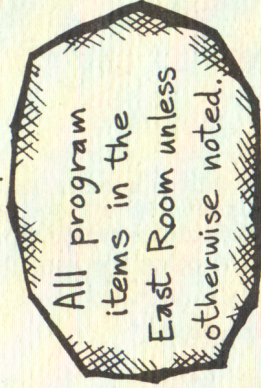 All program
items in the
East Room unless
otherwise noted.